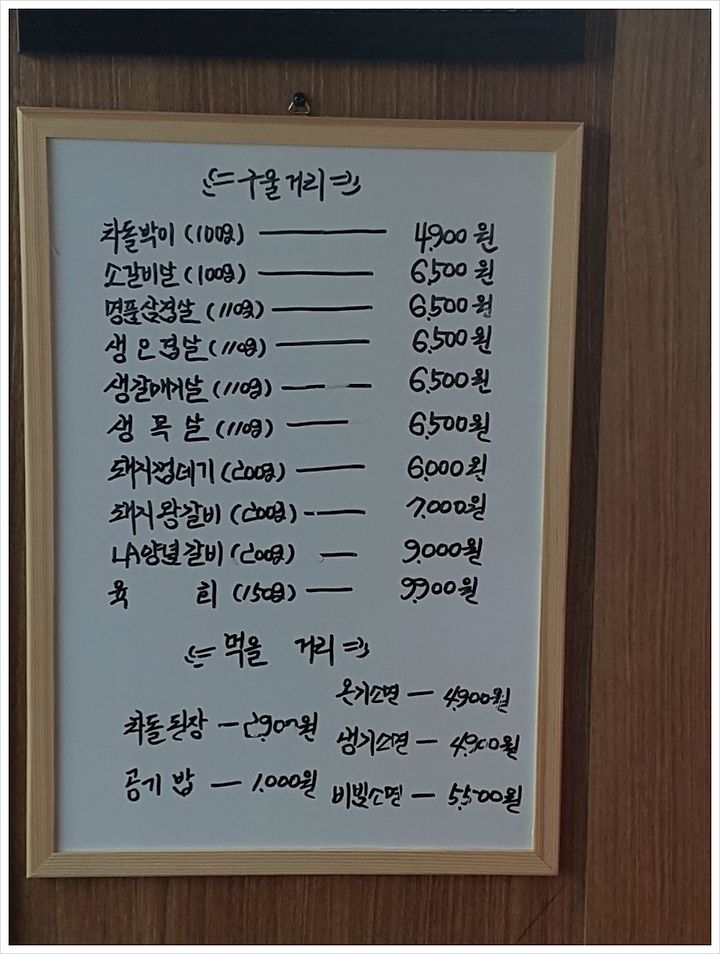 구울거리
차돌박이 (100g) 4,900원
소갈비살 (100g) 6,500원
명품삼겹살 (110g) 6,500원
생오겹살 (110g) 6,500원
생갈매기살 (110g) 6,500원
생 목 살 (110g) 6,500원
돼지껍데기 (200g) 6,000원
돼지왕갈비 (200g) 7,000원
LA양념갈비 (200g) 9,000원
육 회 (150g) 9,900원
먹을 거리
온기소면 4,900원
차돌된장 2,900원
냉기소면 4,900원
공기 밥 1,000원
비빔소면 5,500원